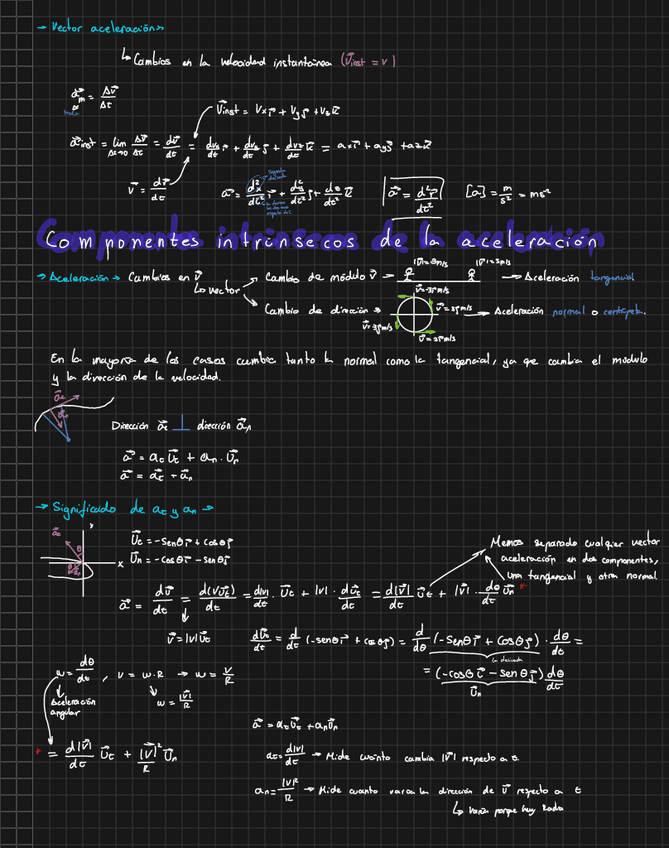 → Vector aceleración →
↳ Cambios en la velocidad instantánea (v⃗inst = v)
a⃗m = Δv⃗/Δt
media
v⃗inst = vx i⃗ + vy j⃗ + vz k⃗
a⃗inst = lim Δt→0 Δv⃗/Δt = dv⃗/dt = dvx/dt i⃗ + dvy/dt j⃗ + dvz/dt k⃗ = ax i⃗ + ay j⃗ + az k⃗
v⃗ = dr⃗/dt
Segunda derivada
a⃗ = d²x/dt² i⃗ + d²y/dt² j⃗ + d²z/dt² k⃗
a⃗ = d²r⃗/dt²
[a] = m/s² = ms²
Componentes intrínsecos de la aceleración
→ Aceleración → Cambios en v⃗
↳ vector
Cambio de módulo v⃗ → → Aceleración tangencial
Cambio de dirección → → Aceleración normal o centrípeta.
En la mayoría de los casos cambia tanto la normal como la tangencial, ya que cambia el módulo
y la dirección de la velocidad.
a⃗t
a⃗n
Dirección a⃗t ⊥ dirección a⃗n
a⃗ = at u⃗t + an · u⃗n
a⃗ = a⃗t + a⃗n
→ Significado de at y an →
a⃗t
y
x
θ
u⃗t = -senθ i⃗ + cosθ j⃗
u⃗n = -cosθ i⃗ - senθ j⃗
Hemos separado cualquier vector
aceleración en dos componentes,
una tangencial y otra normal
a⃗ = dv⃗/dt = d(vu⃗t)/dt = d|v|/dt · u⃗t + |v| · du⃗t/dt = d|v⃗|/dt u⃗t + |v⃗| · dθ/dt u⃗n *
v⃗ = |v|u⃗t
du⃗t/dt = d/dt (-senθ i⃗ + cosθ j⃗) = d/dθ (-senθ i⃗ + cosθ j⃗) · dθ/dt =
la derivada
= (-cosθ i⃗ - senθ j⃗) dθ/dt
u⃗n
w = dθ/dt , v = w·R → w = v/R
↓ Aceleración angular
w = |v⃗|/R
* = d|v⃗|/dt u⃗t + |v⃗|²/R u⃗n
a⃗ = at u⃗t + an u⃗n
at = d|v|/dt → Mide cuánto cambia |v⃗| respecto a t
an = |v|²/R → Mide cuanto varía la dirección de v⃗ respecto a t
↳ Varía porque hay Radio